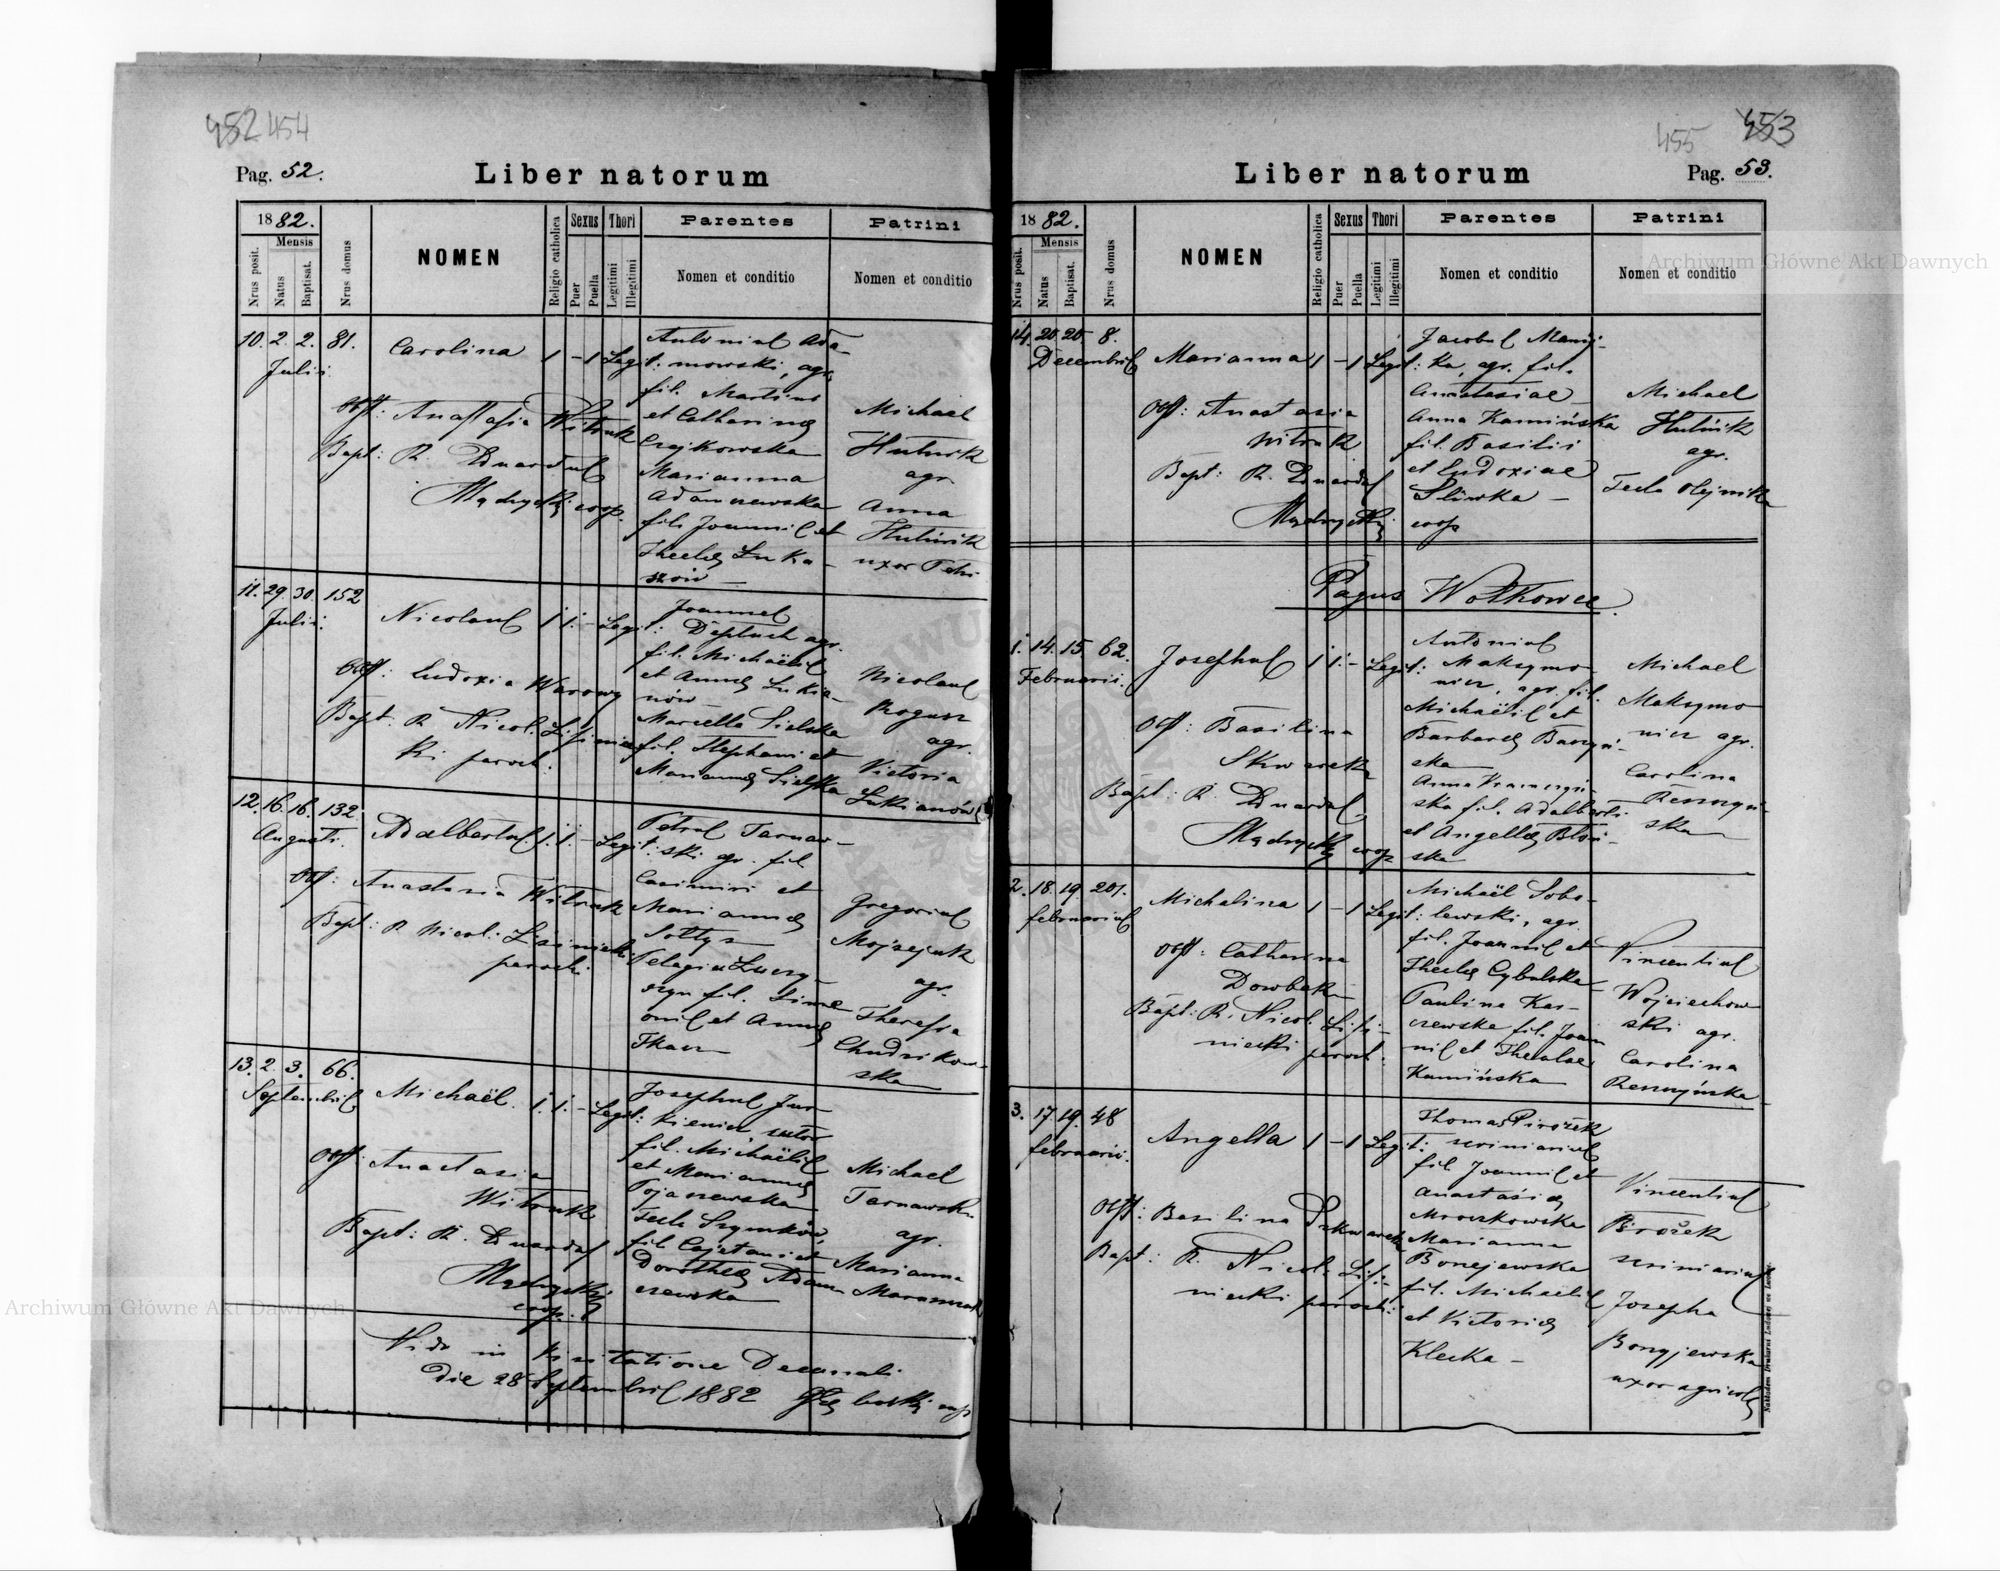 452 454
Pag. 52.
Liber natorum
18 82.
Nrus posit.
Mensis
Natus
Baptisat.
Nrus domus
NOMEN
Religio catholica
Sexus
Puer
Puella
Thori
Legitimi
Illegitimi
Parentes
Nomen et conditio
Patrini
Nomen et conditio
10. 2. 2. 81.
Julii
Carolina 1 - 1 Legit:
Obst: Anastasia Witruk
Bapt: R. Eduardus
Mądrycki coop.
Antonius Ada-
mowski, agr.
fil. Martini
et Catharinae
Czajkowska
Marianna
Adamczewska
fil. Joannis et
Theclae Luka-
szów —
Michael
Hutnik
agr.
Anna
Hutnik
uxor Petri
11. 29. 30. 152
Julii.
Nicolaus 1 1. - Legit:
Obst: Eudoxia Warowy
Bapt: R. Nicol. Lisiniec-
ki paroch.
Joannes
Deptuch agr.
fil. Michaëlis
et Annae Lukia-
nów —
Marcella Sielska
fil. Stephani et
Mariannae Sielska
Nicolaus
Rogusz
agr.
Victoria
Lukianów
12. 16. 16. 132.
Augusti.
Adalbertus. 1. 1. - Legit:
Obst: Anastasia Witruk
Bapt: R. Nicol. Lisiniecki
parochi.
Petrus Tarnaw-
ski agr. fil.
Casimiri et
Mariannae
Sołtys
Pelagia
fil. Sime-
onis et Annae
Tkacz —
Gregorius
Mojsejuk
agr.
Theressa
Chudzikow-
ska
13. 2. 3. 66.
Septembris
Michaël. 1. 1. - Legit:
Obst: Anastasia
Witruk
Bapt: R. Eduardus
Mądrycki
coop.
Josephus Jur-
kiewicz, sutor
fil. Michaëlis
et Mariannae
Tojaszewska
Tecla Szymków,
fil. Cajetani et
Dorotheae Adam-
czewska —
Michael
Tarnawski
agr.
Marianna
Maruszczak
Vidi in Visitatione Decanali
die 28 Septembris 1882
455 453
Liber natorum
Pag. 53.
18 82.
Nrus posit.
Mensis
Natus
Baptisat.
Nrus domus
NOMEN
Religio catholica
Sexus
Puer
Puella
Thori
Legitimi
Illegitimi
Parentes
Nomen et conditio
Patrini
Nomen et conditio
14. 20. 20. 8.
Decembris
Marianna 1 - 1 Legit:
Obst: Anastasia
Witruk
Bapt: R. Eduardus
Mądrycki coop
Jacobus
ka, agr. fil.
Anastasiae —
Anna Kamińska
fil. Basilii
et Eudoxiae
Śliwka —
Michael
Hutnik
agr.
Tecla Olejnik
Pagus Wołkowce.
1. 14. 15. 62.
Februarii.
Josephus 1 1. - Legit:
Obst: Basilina
Skwarek
Bapt: R. Eduardus
Mądrycki coop
Antonius
Maksymo-
wicz, agr. fil.
Michaëlis et
Barbarae
ska
Anna
ska fil. Adalberti
et Angellae Błoń-
ska
Michael
Maksymo
wicz agr.
Carolina
Renczyń-
ska
2. 18. 19. 201.
februarius
Michalina 1 - 1 Legit:
Obst: Catharina
Dowbek
Bapt: R. Nicol. Lisi-
niecki paroch.
Michaël Sobo-
lewski, agr.
fil. Joannis et
Theclae Cybulska
Paulina Kas-
czewska fil. Joan
nis et Theclae
Kamińska
Vincentius
Wojciechow
ski agr.
Carolina
Renczyńska
3. 17. 19. 48
februarii.
Angella 1 - 1 Legit:
Obst: Basilina Skwarek
Bapt: R. Nicol. Lisi-
niecki parochi.
Thomas Pirożek
scriniarius
fil. Joannis et
Anastasiae
Mroczkowska
Marianna
Boncjewska
fil. Michaëlis
et Victoriae
Klecka —
Vincentius
Birożek
scriniarius
Josepha
Boncjewska
uxor agricolae
Nakładem Drukarni Ludowej we Lwowie.
Archiwum Główne Akt Dawnych
Archiwum Główne Akt Dawnych